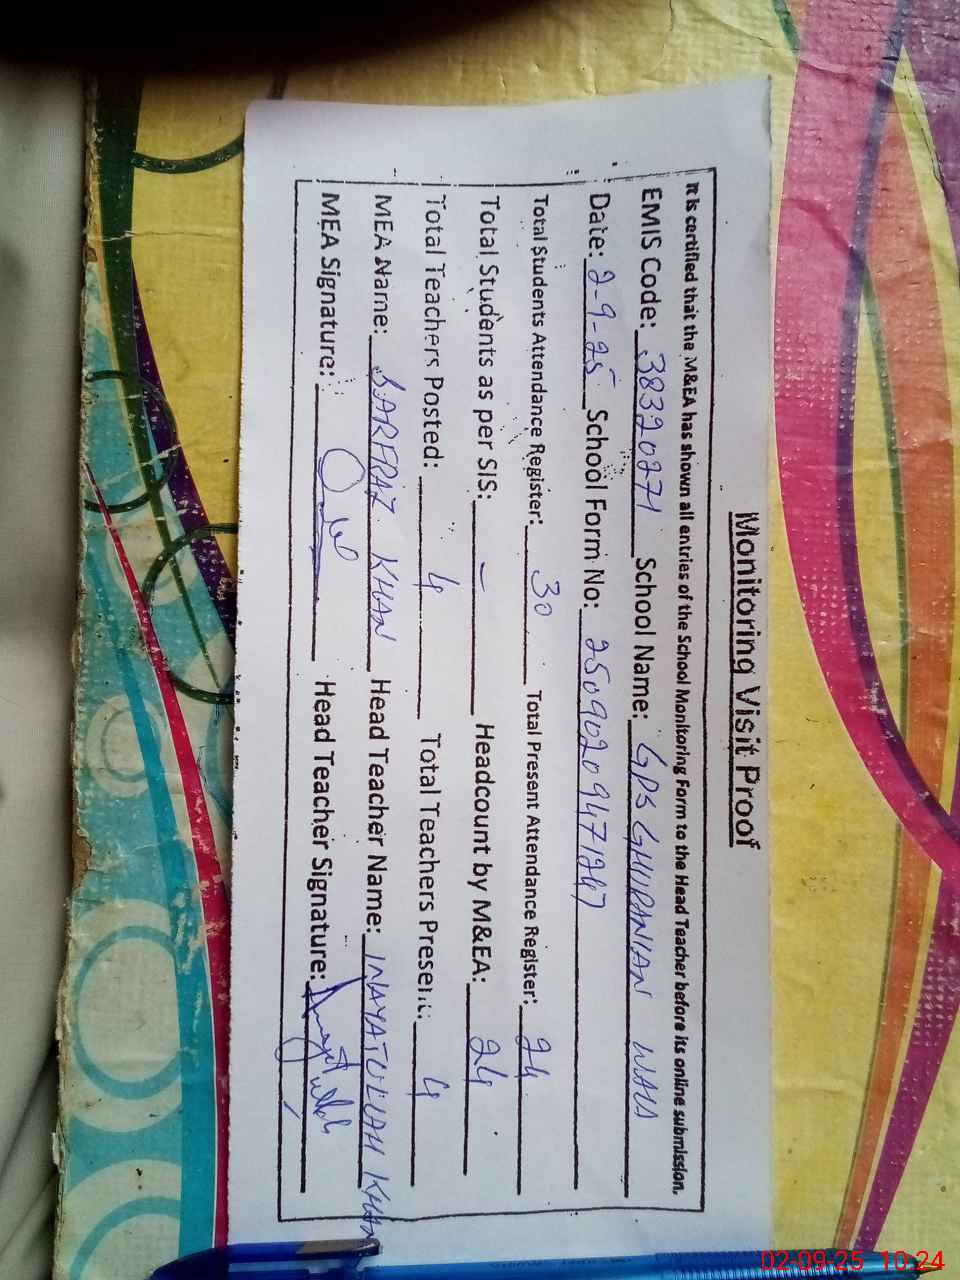 Monitoring Visit Proof
It is certified that the M&EA has shown all entries of the School Monitoring Form to the Head Teacher before its online submission.
EMIS Code: 38320271 School Name: GPS GHURANIAN WALI
Date: 2-9-25 School Form No: 25090209471247
Total Students Attendance Register: 30 Total Present Attendance Register: 24
Total Students as per SIS: - Headcount by M&EA: 24
Total Teachers Posted: 4 Total Teachers Present: 4
MEA Name: SARFRAZ KHAN Head Teacher Name: INAYATULLAH KHAN
MEA Signature: Head Teacher Signature:
02-09-25 10:24